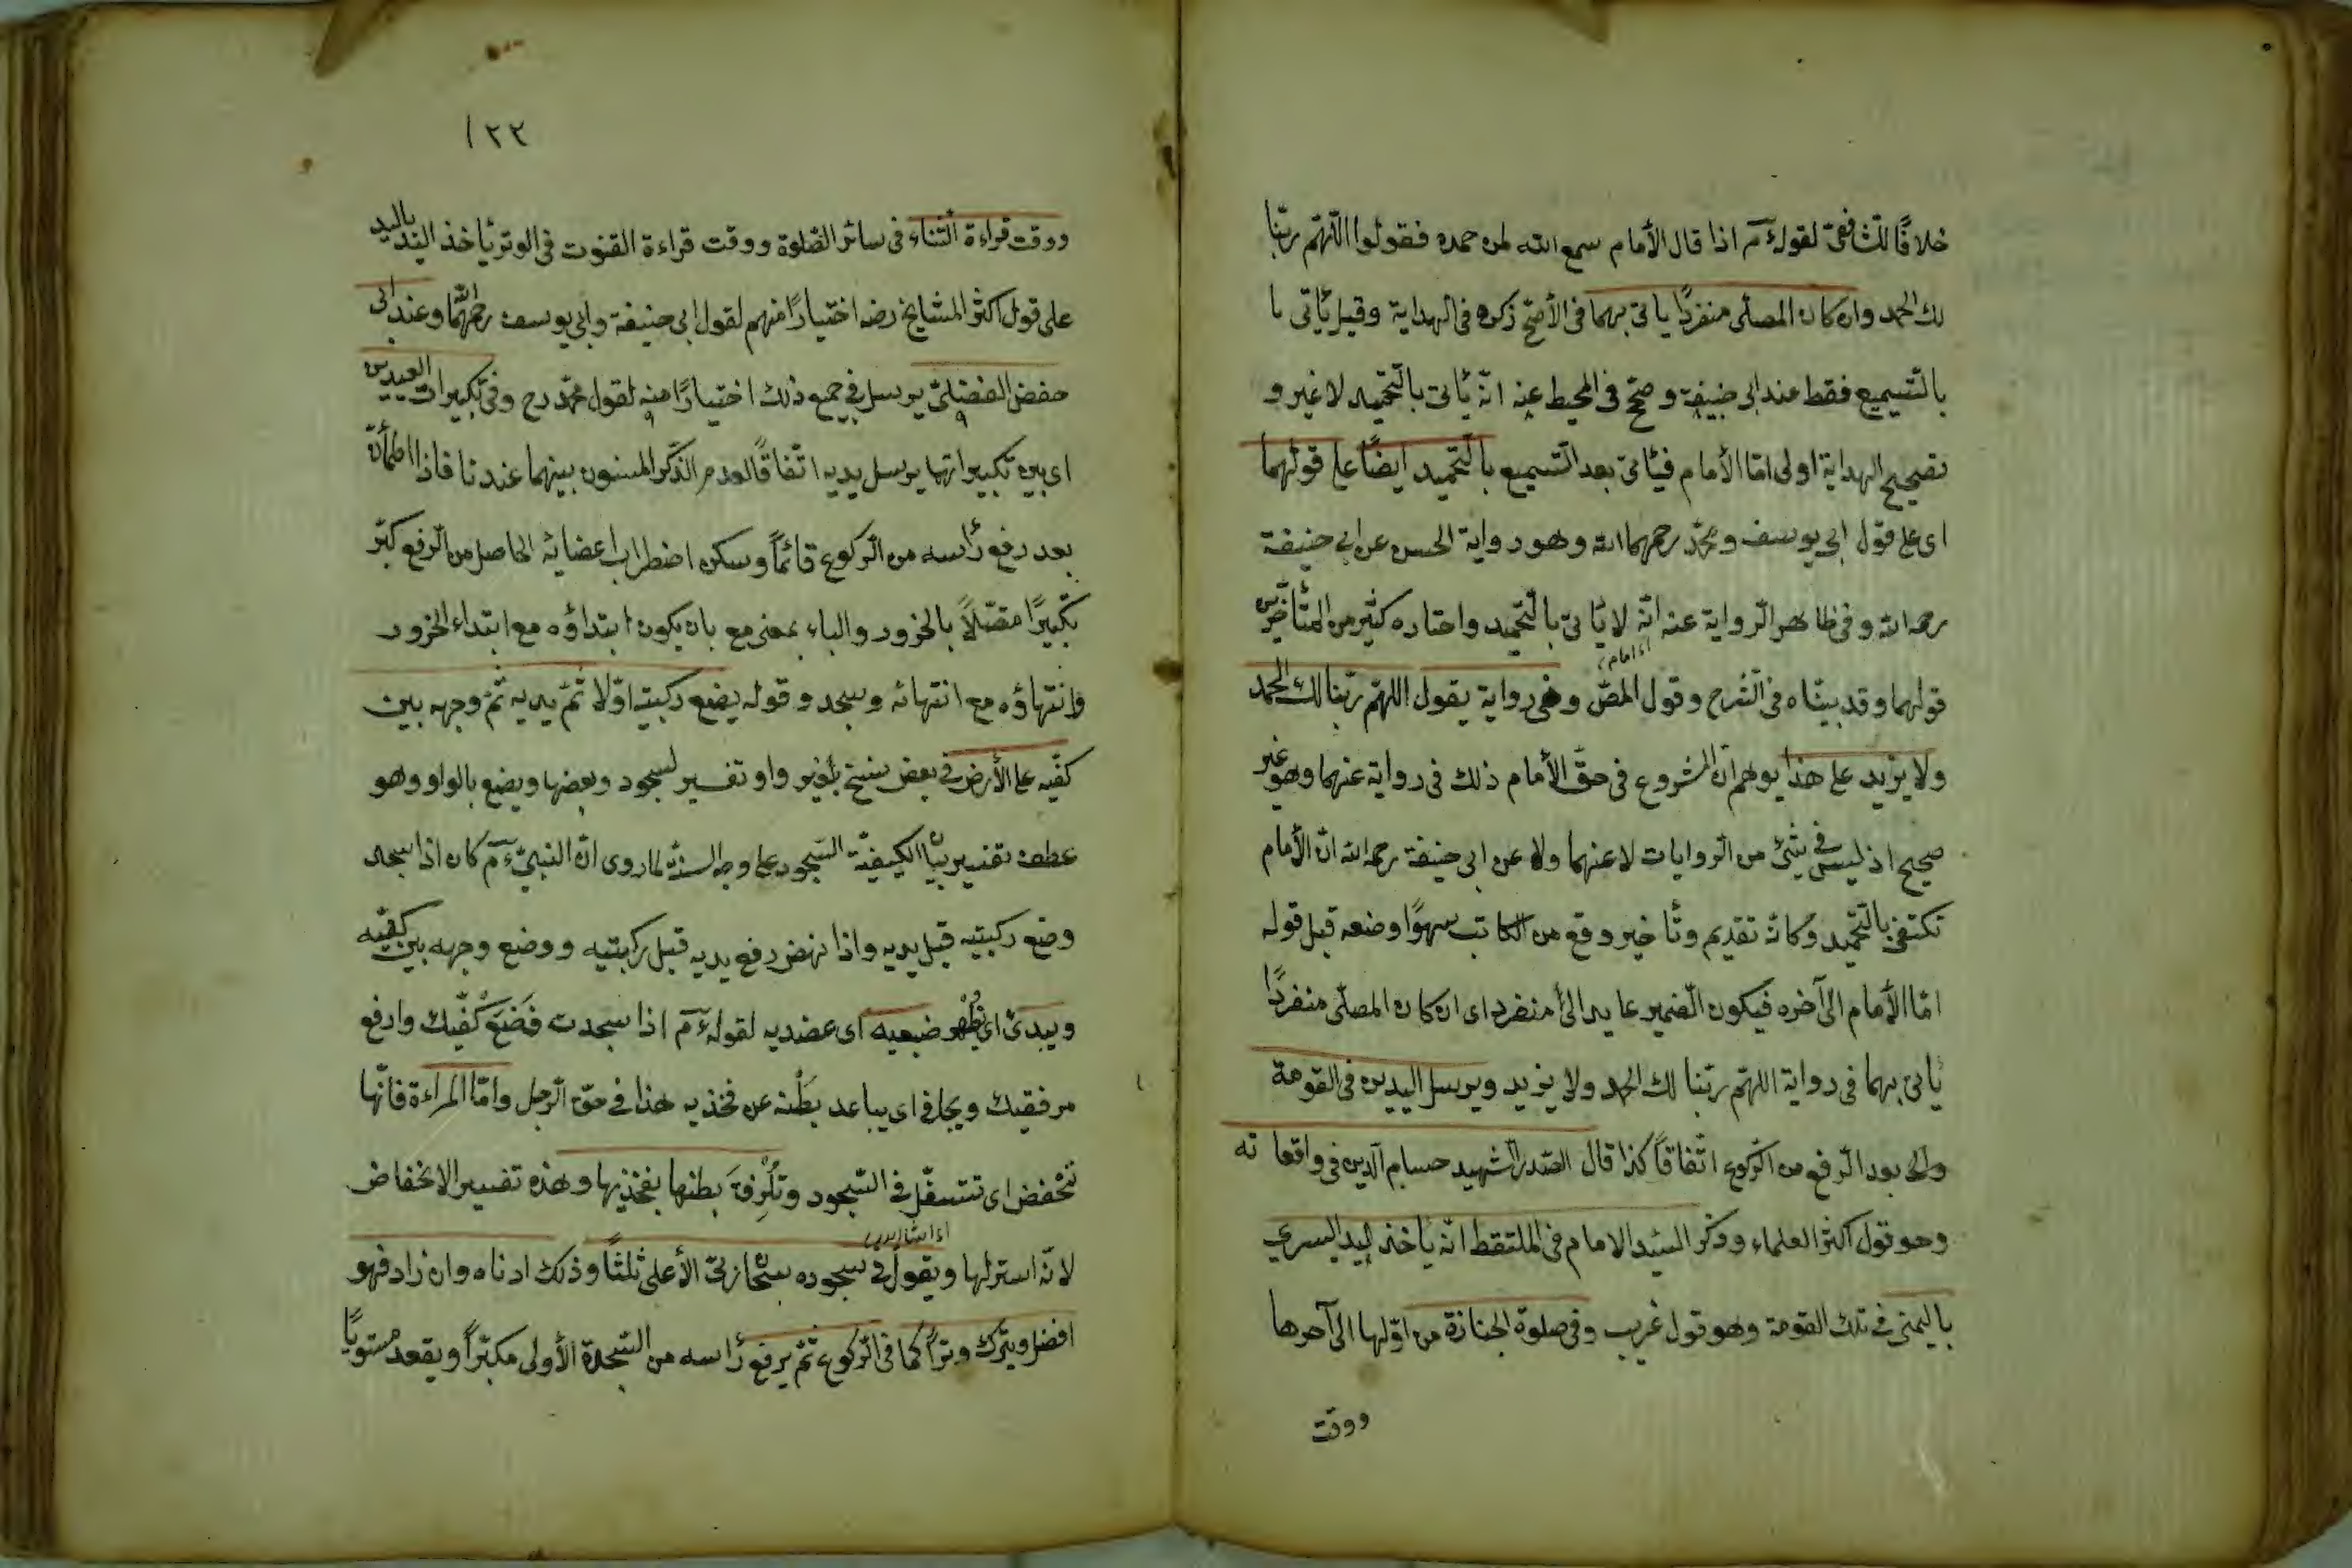 خلافًا للشافعىّ لقوله ءم اذا قال الأمام سمع الله لمن حمده فقولوا اللّهمّ ربّنا
لك الحمد وان كان المصلّى منفردًا يأتى بهما فى الأصحّ ذكره فى الهداية وقيل يأتى
بالتّسميع فقط عند ابى حنيفة وصحّح فى المحيط عنه انّه يأتى بالتّحميد لا غير و
تصحيح الهداية اولى امّا الأمام فيأتى بعد التّسميع بالتّحميد ايضًا على قولهما
اى على قول ابى يوسف ومحمّد رحمهما الله وهو رواية الحسن عن ابى حنيفة
رحمه الله وفى ظاهر الرّواية عنه انّه لا يأتى بالتّحميد واختاره كثير من المتأخّرين
قولهما وقد بيّنّاه فى الشّرح وقول المصّ وفى رواية يقول اللهمّ ربّنا لك الحمد
ولا يزيد على هذا يوهم انّ المشروع فى حقّ الأمام ذلك فى رواية عنهما وهو غير
صحيح اذ ليس فى شئ من الرّوايات لا عنهما ولا عن ابى حنيفة رحمه الله انّ الأمام
تكتفى بالتّحميد وكانّه تقديم وتأخير وقع من الكاتب سهوًا وضعه قبل قوله
امّا الأمام الى آخره فيكون الضّمير عايد الى منفرد اى ان كان المصلّى منفردًا
يأتى بهما فى رواية اللهمّ ربّنا لك الحمد ولا يزيد ويرسل اليدين فى القومة
بعد الرّفع من الرّكوع اتّفاقًا كذا قال الصّدر الشهيد حسام الدّين فى واقعاته
وهو قول اكثر العلماء وذكر السّيد الامام فى الملتقط انّه يأخذ اليد اليسرى
باليمنى فى تلك القومة وهو قول غريب وفى صلوة الجنازة من اوّلها الى آخرها
ووقت
١٢٢
ووقت قراءة الثّناء فى سائر الصّلوة ووقت قراءة القنوت فى الوتر يأخذ اليد باليد
على قول اكثر المشايخ رضه اختيارًا منهم لقول ابى حنيفة وابى يوسف رحمهما الله وعند ابى
حفص الفضلىّ يرسل فى جميع ذلك اختيارًا منه لقول محمّد رح وفى تكبيرات العيدين
اى بين تكبيراتها يرسل يديه اتّفاقًا لعدم الذّكر المسنون بينهما عندنا فاذا اطمأنّ
بعد رفع رأسه من الرّكوع قائمًا وسكن اضطراب اعضائه الحاصل من الرّفع كبّر
تكبيرًا متّصلًا بالخرور والباء بمعنى مع بان يكون ابتداؤه مع ابتداء الخرور
وانتهاؤه مع انتهائه وسجد وقوله يضع ركبتيه اوّلا ثمّ يديه ثمّ وجهه بين
كفّيه على الأرض فى بعض نسخ بغير واو تفسير لسجود وبعضها ويضع بالواو وهو
عطف تفسير بيان الكيفيّة السّجود على وجه السّنّة لما روى انّ النبىّ ءم كان اذا سجد
وضع ركبتيه قبل يديه واذا نهض رفع يديه قبل ركبتيه ووضع وجهه بين كفّيه
ويبدئ اى يُظْهر ضبعيه اى عضديه لقوله ءم اذا سجدت فَضَعْ كفّيك وارفع
مرفقيك ويجافى اى يباعد بَطْنه عن فخذيه هذا فى حقّ الرّجل وامّا المراءة فانّها
تنْخفض اى تتسفّل فى السّجود وتُلْزِقُ بطنها بفخذيها وهذه تفسير الانخفاض
لانّه استر لها ويقول فى سجوده سبحان ربّى الأعلى ثلثًا وذلك ادناه وان زاد فهو
افضل ويترك وترًا كما فى الرّكوع ثمّ يرفع رأسه من السّجدة الأولى مكبّرًا ويقعد مستويًا